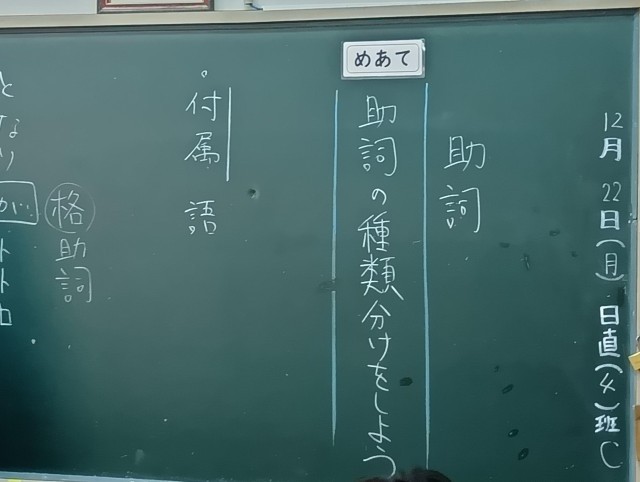 12月22日(月)日直(4)班C
助詞
めあて
助詞の種類分けをしよう
付属語
格助詞